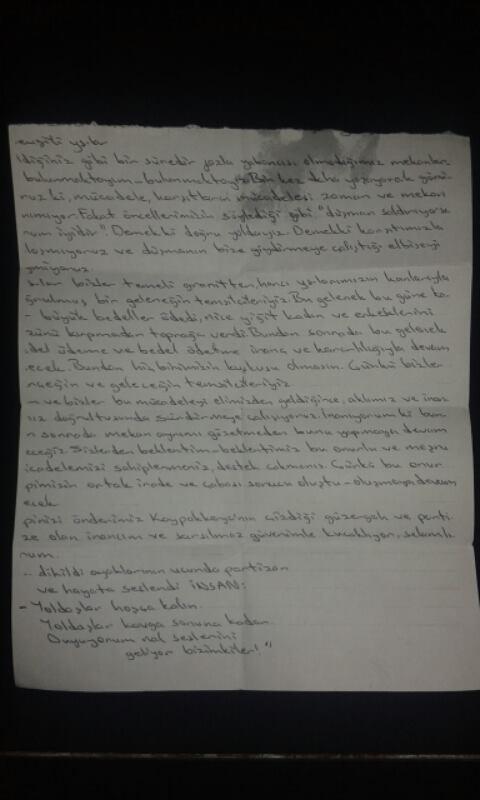 diğiniz gibi bir süredir fazla yabancısı olmadığımız mekanlar
bulunmaktayım-bulunmaktayız. Bir kez daha yaşayarak görü-
ruz ki, mücadele, karşıtların mücadelesi zaman ve mekan
nımıyor. Fakat öncellerimizin söylediği gibi "düşman saldırıyorsa
rum iyidir". Demek ki doğru yoldayız. Demek ki karşıtımızla
laşmıyoruz ve düşmanın bize giydirmeye çalıştığı elbiseyi
ymiyoruz.
bizler temeli granitten, harcı yoldaşlarımızın kanlarıyla
ğrulmuş bir geleneğin temsilcileriyiz. Bu gelenek bu güne ka-
- büyük bedeller ödedi, nice yiğit kadın ve erkeklerini
zünü kırpmadan toprağa verdi. Bundan sonrada bu gelenek
del ödeme ve bedel ödetme inanç ve kararlılığıyla devam
ecek. Bundan hiç birimizin kuşkusu olmasın. Çünkü bizler
rçeğin ve geleceğin temsilcileriyiz.
ve bizler bu mücadeleyi elimizden geldiğince, aklımız ve inan
ız doğrultusunda sürdürmeye çalışıyoruz. İnanıyorum ki bun-
n sonrada mekan ayrımı gözetmeden bunu yapmaya devam
eceğiz. Sizlerden beklentim-beklentimiz bu onurlu ve meşru
cadelemizi sahiplenmeniz, destek olmanız. Çünkü bu onur
pimizin ortak irade ve çabası sonucu oluştu-oluşmaya devam
ecek
pinizi önderimiz Kaypakkaya'nın çizdiği güzergah ve parti-
ze olan inancım ve sarsılmaz güvenimle kucaklıyor, selamlı
rum.
dikildi ayaklarının ucunda partizan
ve hayata seslendi İNSAN:
- Yoldaşlar hoşça kalın
Yoldaşlar kavga sonuna kadar
Duyuyorum nal seslerini
geliyor bizimkiler!"